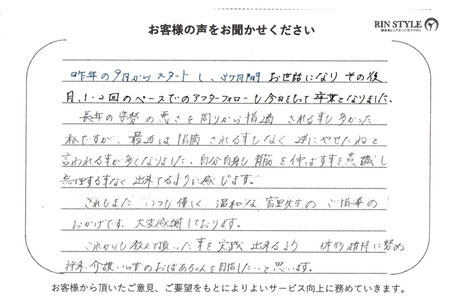 お客様の声をお聞かせください
RIN STYLE
昨年の9月からスタートし、3ヶ月間お世話になりその後
月、1-2回のペースでのアフターフォローも今日をもって卒業となりました。
長年の姿勢の悪さを周りから指摘される事も多かった
私ですが、最近は指摘される事もなく逆にやせたねと
言われる事が多くなりました。自分自身も背筋を伸ばす事を意識し
無理する事なく出来てるように感じます。
これもまた、いつも優しく、温和な 先生のご指導の
おかげです。大変感謝しております。
これからも教えて頂いた事を実践出来るよう 体的維持に努め
将来、介護いらずのおばあちゃんを目指したいと思います。
お客様から頂いたご意見、ご要望をもとによりよいサービス向上に務めていきます。